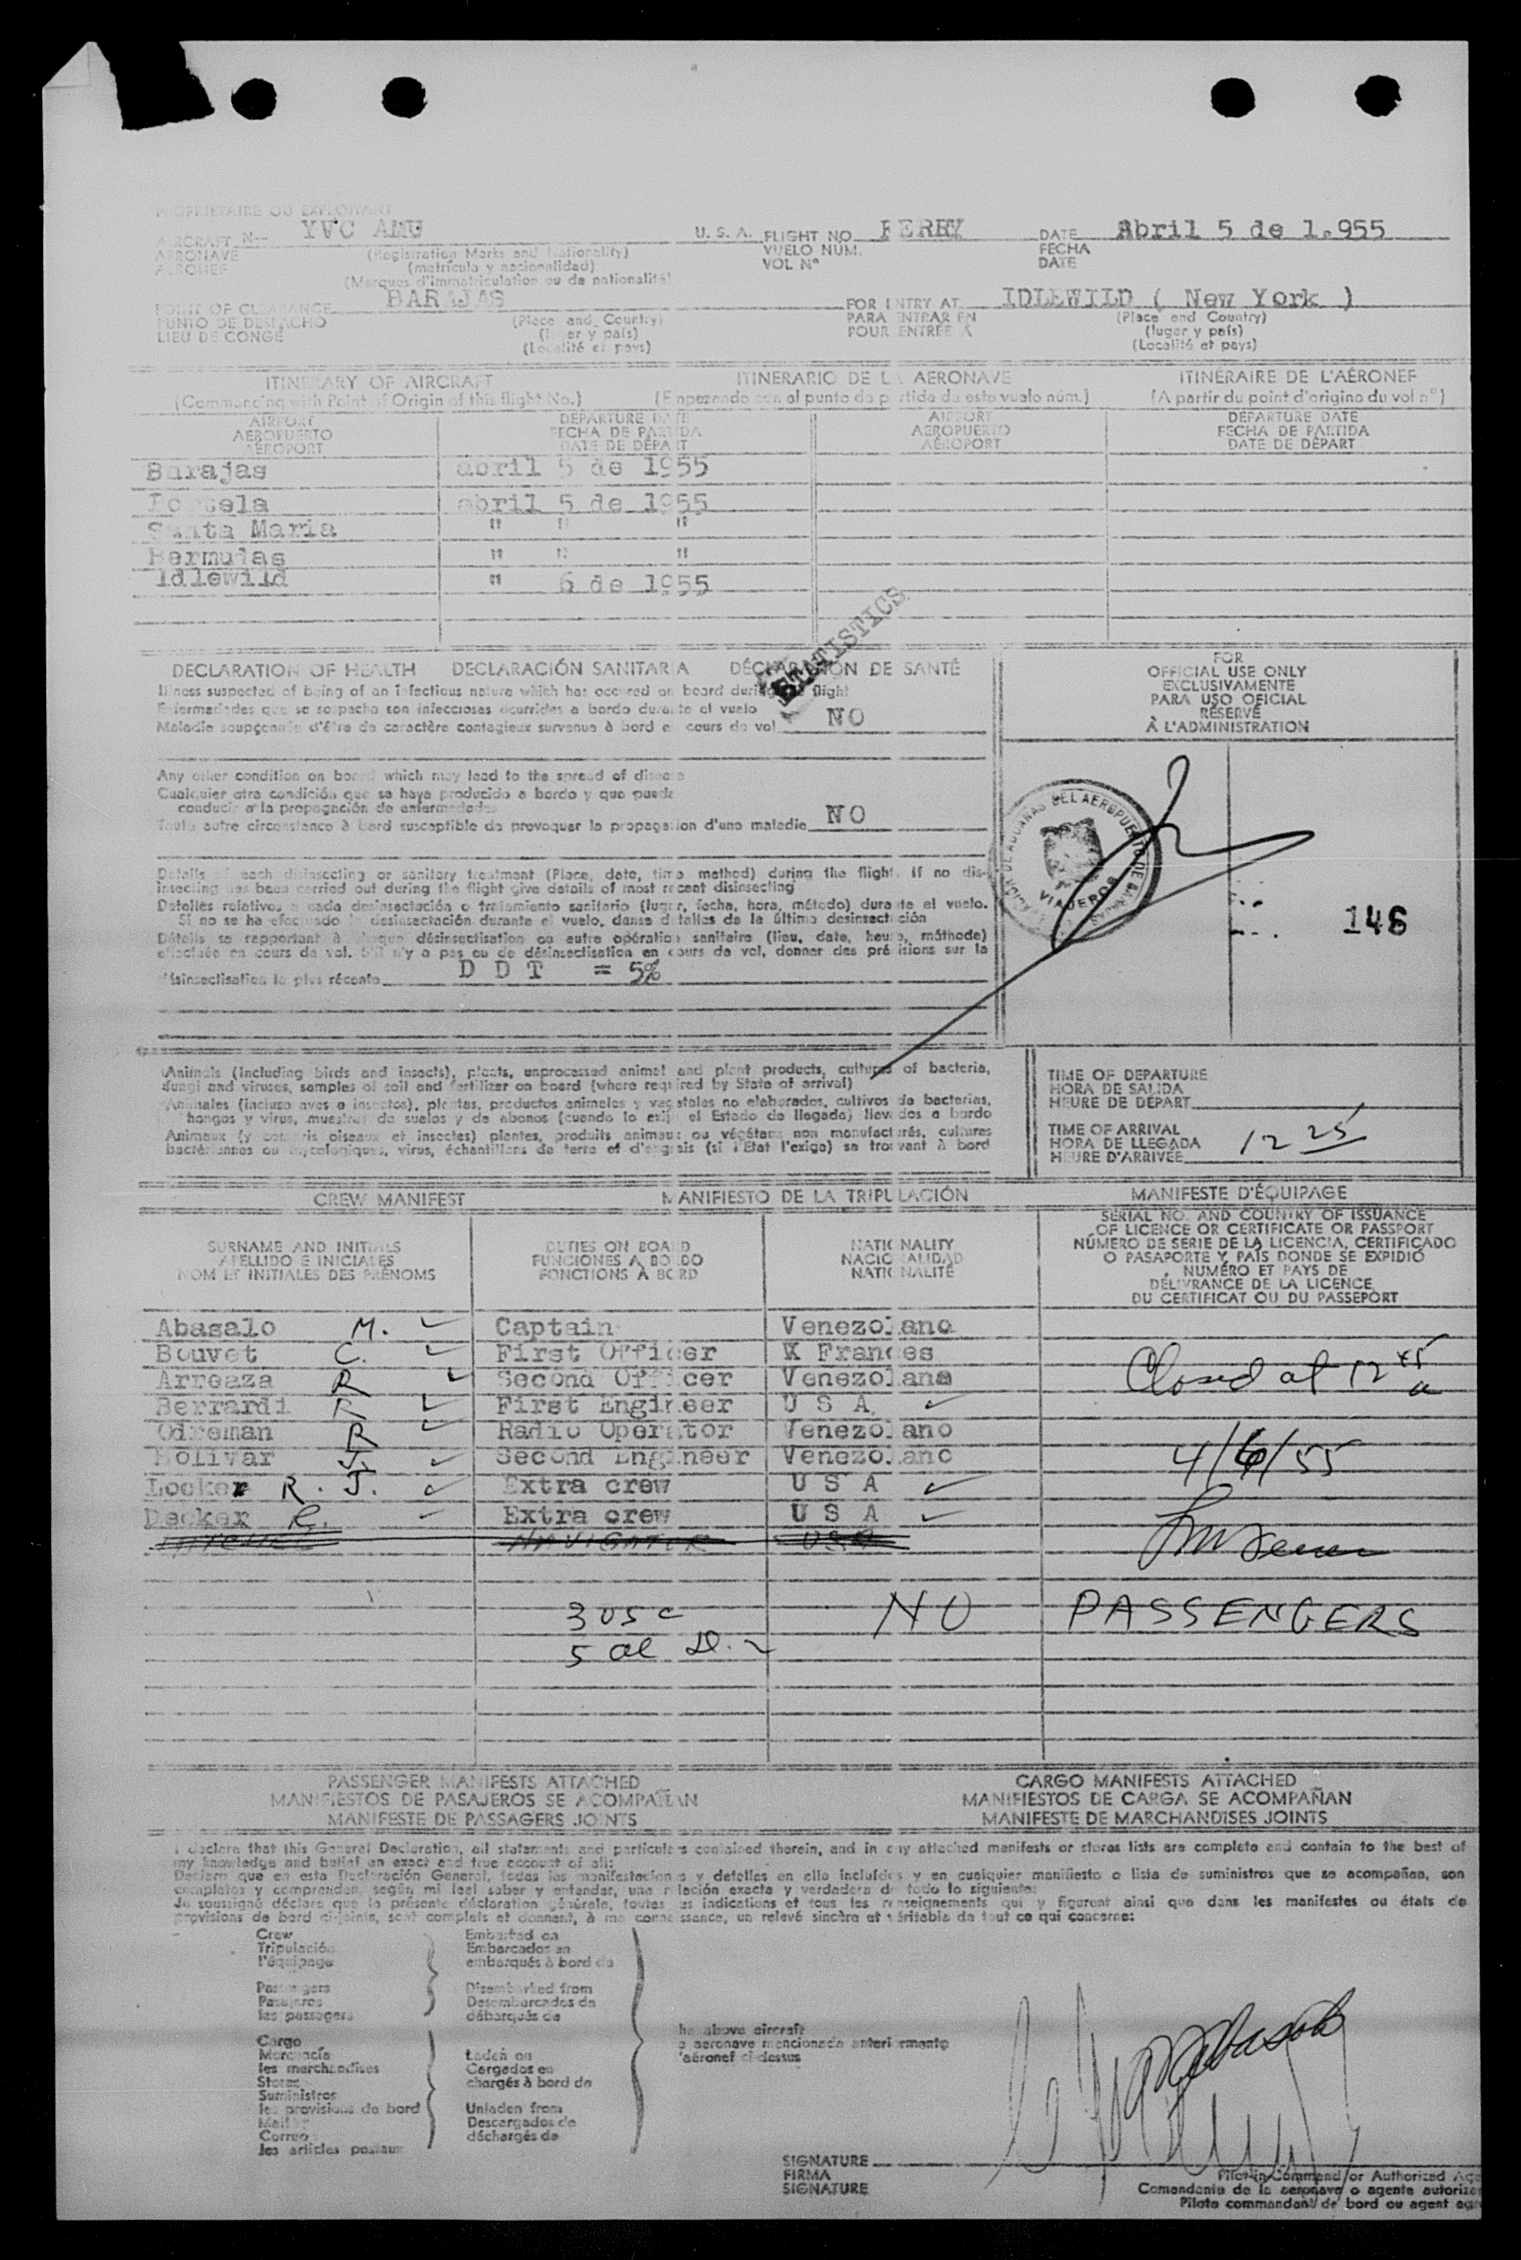 PROPRIETAIRE OU EXPLOITANT
AIRCRAFT N-- YVC AMU U. S. A. FLIGHT NO FERRY DATE Abril 5 de 1.955
AERONAVE (Registration Marks and Nationality) VUELO NUM. FECHA
AERONEF (matrícula y nacionalidad) VOL Nº DATE
(Marques d'immatriculation ou de nationalité)
POINT OF CLEARANCE BARAJAS FOR ENTRY AT IDLEWILD ( New York )
PUNTO DE DESPACHO (Place and Country) PARA ENTRAR EN (Place and Country)
LIEU DE CONGE (lugar y país) POUR ENTRÉE A (lugar y país)
(Localité et pays) (Localité et pays)
ITINERARY OF AIRCRAFT ITINERARIO DE LA AERONAVE ITINÉRAIRE DE L'AÉRONEF
(Commencing with Point of Origin of this flight No.) (Empezando con el punto de partida de este vuelo núm.) (A partir du point d'origine du vol nº)
AIRPORT DEPARTURE DATE AIRPORT DEPARTURE DATE
AEROPUERTO FECHA DE PARTIDA AEROPUERTO FECHA DE PARTIDA
AÉROPORT DATE DE DÉPART AÉROPORT DATE DE DÉPART
Barajas abril 5 de 1955
Portela abril 5 de 1955
Santa Maria " " "
Bermudas " " "
Idlewild " 6 de 1955
STATISTICS
DECLARATION OF HEALTH DECLARACIÓN SANITARIA DÉCLARATION DE SANTÉ
Illness suspected of being of an infectious nature which has occured on board during the flight
Enfermedades que se sospecha son infecciosas ocurridas a bordo durante el vuelo
Maladie soupçonnée d'être de caractère contagieux survenue à bord en cours de vol NO
Any other condition on board which may lead to the spread of disease
Cualquier otra condición que se haya producido a bordo y que puede
conducir a la propagación de enfermedades
Toute autre circonstance à bord susceptible de provoquer la propagation d'une maladie NO
Details of each disinsecting or sanitary treatment (Place, date, time method) during the flight. If no dis-
insecting has been carried out during the flight give details of most recent disinsecting
Detalles relativos a cada desinsectación o tratamiento sanitario (lugar, fecha, hora, método) durante el vuelo.
Si no se ha efectuado la desinsectación durante el vuelo, danse detalles de la última desinsectación
Détails se rapportant à chaque désinsectisation ou autre opération sanitaire (lieu, date, heure, méthode)
effectuée en cours de vol. S'il n'y a pas eu de désinsectisation en cours de vol, donner des précisions sur la
désinsectisation la plus récente D D T = 5%
FOR
OFFICIAL USE ONLY
EXCLUSIVAMENTE
PARA USO OFICIAL
RÉSERVÉ
À L'ADMINISTRATION
DE ADUANAS DEL AEROPUERTO DE BARAJAS
VIAJEROS
146
Animals (including birds and insects), plants, unprocessed animal and plant products, cultures of bacteria,
fungi and viruses, samples of soil and fertilizer on board (where required by State of arrival)
Animales (incluso aves e insectos), plantas, productos animales y vegetales no elaborados, cultivos de bacterias,
hongos y virus, muestras de suelos y de abonos (cuando lo exija el Estado de llegada) llevados a bordo
Animaux (y compris oiseaux et insectes) plantes, produits animaux ou végétaux non manufacturés, cultures
bactériennes ou mycologiques, virus, échantillons de terre et d'engrais (si l'Etat l'exige) se trouvant à bord
TIME OF DEPARTURE
HORA DE SALIDA
HEURE DE DÉPART
TIME OF ARRIVAL
HORA DE LLEGADA 12 25
HEURE D'ARRIVÉE
CREW MANIFEST MANIFIESTO DE LA TRIPULACIÓN MANIFESTE D'ÉQUIPAGE
SURNAME AND INITIALS DUTIES ON BOARD NATIONALITY
APELLIDO E INICIALES FUNCIONES A BORDO NACIONALIDAD
NOM ET INITIALES DES PRÉNOMS FONCTIONS À BORD NATIONALITÉ
SERIAL NO. AND COUNTRY OF ISSUANCE
OF LICENCE OR CERTIFICATE OR PASSPORT
NÚMERO DE SERIE DE LA LICENCIA, CERTIFICADO
O PASAPORTE Y PAÍS DONDE SE EXPIDIÓ
NUMÉRO ET PAYS DE
DÉLIVRANCE DE LA LICENCE
DU CERTIFICAT OU DU PASSEPORT
Abasalo M. Captain Venezolano
Bouvet C. First Officer K Frances
Arreaza R Second Officer Venezolana
Berrardi R First Engineer U S A
Odreman R Radio Operator Venezolano
Bolivar J. Second Engineer Venezolano
Locker R. J. Extra crew U S A
Decker R. Extra crew U S A
NAVIGATOR USA
Closed at 12 45 a
4/6/55
3 USC
5 al
NO PASSENGERS
PASSENGER MANIFESTS ATTACHED CARGO MANIFESTS ATTACHED
MANIFIESTOS DE PASAJEROS SE ACOMPAÑAN MANIFIESTOS DE CARGA SE ACOMPAÑAN
MANIFESTE DE PASSAGERS JOINTS MANIFESTE DE MARCHANDISES JOINTS
I declare that this General Declaration, all statements and particulars contained therein, and in any attached manifests or stores lists are complete and contain to the best of
my knowledge and belief an exact and true account of all:
Declaro que en esta Declaración General, todas las manifestaciones y detalles en ella incluídos y en cualquier manifiesto o lista de suministros que se acompañan, son
completos y comprenden, según mi leal saber y entender, una relación exacta y verdadera de todo lo siguiente:
Je soussigné déclare que la présente déclaration générale, toutes les indications et tous les renseignements qui y figurent ainsi que dans les manifestes ou états de
provisions de bord ci-joints, sont complets et donnent, à ma connaissance, un relevé sincère et véritable de tout ce qui concerne:
Crew Embarked on
Tripulación Embarcados en
l'équipage embarqués à bord de
Passengers Disembarked from
Pasajeros Desembarcados de
les passagers débarqués de
the above aircraft
Cargo la aeronave mencionada anteriormente
Mercancía Laden on l'aéronef ci-dessus
les marchandises Cargados en
Stores chargés à bord de
Suministros
les provisions de bord Unladen from
Mail Descargados de
Correo déchargés de
les articles postaux
Mabasalo
SIGNATURE Pilot in Command or Authorized Age
FIRMA Comandante de la aeronave o agente autoriza
SIGNATURE Pilote commandant de bord ou agent agr